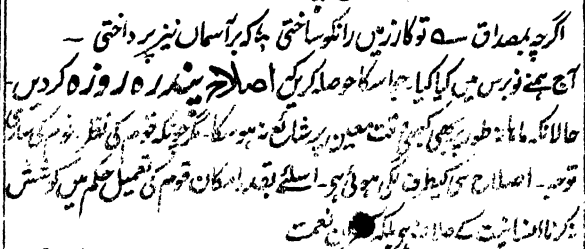 اگرچہ بمصداق ؎ تو کار زمیں را نکو ساختی ÷ کہ بر آسماں نیز پرداختی ــ
آج ہمنے نو برس میں کیا کیا۔ جو اسکا حوصلہ کریں کہ اصلاح پندرہ روزہ کردیں۔
حالانکہ ماہانہ طور پر بھی کبھی وقت معین پر شائع نہ ہوسکا۔ مگر چونکہ قوم کی نظر۔ قوم کی ساری
توجہ۔ اصلاح ہی کیطرف لگی ہوئی ہے۔ اسلئے بقدر امکان قوم کی تعمیل حکم میں کوشش
نکرنا انسانیت کے خلاف ہے بلکہ کفران نعمت